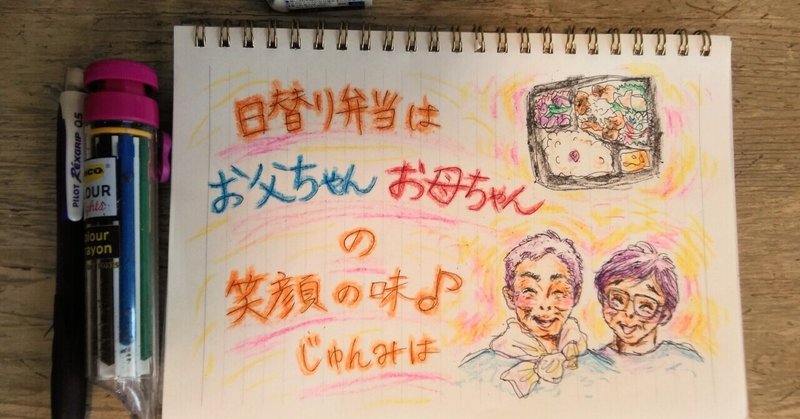 日替り弁当は
お父ちゃん お母ちゃん
の
笑顔の味♪
じゅんみは
PILOT REXGRIP 0.5